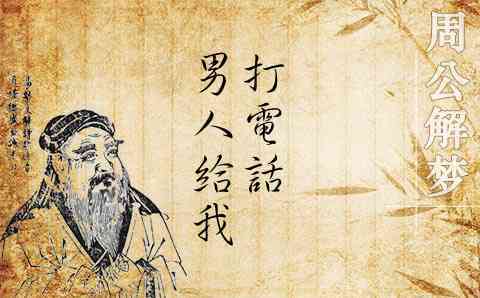 周公解梦
男人給我
打電話